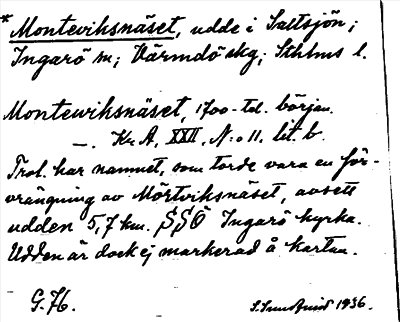 * Montevihsnäset, udde i Saltsjön;
Ingarö sn; Värmdö skg; Sthlms l.
Montewihsnäset, 1700-tal. början.
—. Kr. A, XXII, No 11, lit. b.
Trol. har namnet, som torde vara en för-
vrängning av Mörtviksnäset, avsett
udden 5,7 km. SSÖ Ingarö kyrka.
Udden är dock ej markerad å kartan.
G. 76.
S. Sundquist 1936.